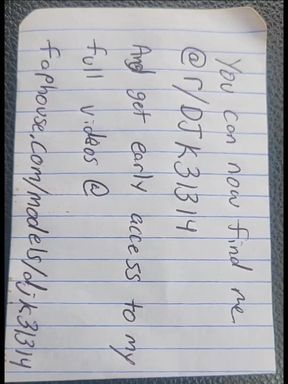 You can now find me
@ r/DJK31314
And get early access to my
full videos @
faphouse.com/models/djk31314